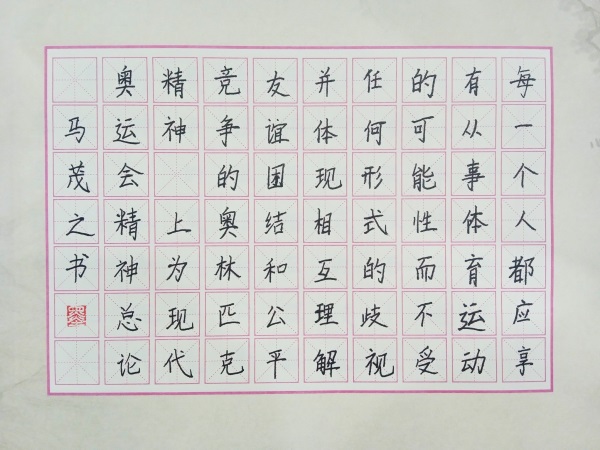 每一个人都应享
有从事体育运动
的可能性而不受
任何形式的歧视
并体现相互理解
友谊团结和公平
竞争的奥林匹克
精神 上为现代
奥运会精神总论
马茂之书